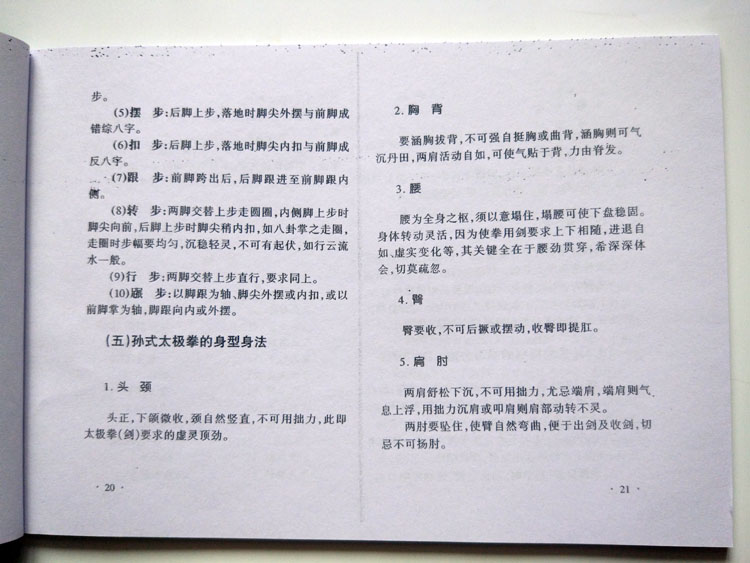 步。
(5)摆　步:后脚上步,落地时脚尖外摆与前脚成
错综八字。
(6)扣　步:后脚上步,落地时脚尖内扣与前脚成
反八字。
(7)跟　步:前脚跨出后,后脚跟进至前脚跟内
侧。
(8)转　步:两脚交替上步走圈圈,内侧脚上步时
脚尖向前,后脚上步时脚尖稍内扣,如八卦掌之走圈,
走圈时步幅要均匀,沉稳轻灵,不可有起伏,如行云流
水一般。
(9)行　步:两脚交替上步直行,要求同上。
(10)碾　步:以脚跟为轴、脚尖外摆或内扣,或以
前脚掌为轴,脚跟向内或外摆。
(五)孙式太极拳的身型身法
1.头　颈
头正,下颌微收,颈自然竖直,不可用拙力,此即
太极拳(剑)要求的虚灵顶劲。
· 20 ·
2.胸　背
要涵胸拔背,不可强自挺胸或曲背,涵胸则可气
沉丹田,两肩活动自如,可使气贴于背,力由脊发。
3.腰
腰为全身之枢,须以意塌住,塌腰可使下盘稳固。
身体转动灵活,因为使拳用剑要求上下相随,进退自
如、虚实变化等,其关键全在于腰劲贯穿,希深深体
会,切莫疏忽。
4.臀
臀要收,不可后撅或摆动,收臀即提肛。
5.肩　肘
两肩舒松下沉,不可用拙力,尤忌端肩,端肩则气
息上浮,用拙力沉肩或叩肩则肩部动转不灵。
两肘要坠住,使臂自然弯曲,便于出剑及收剑,切
忌不可扬肘。
· 21 ·